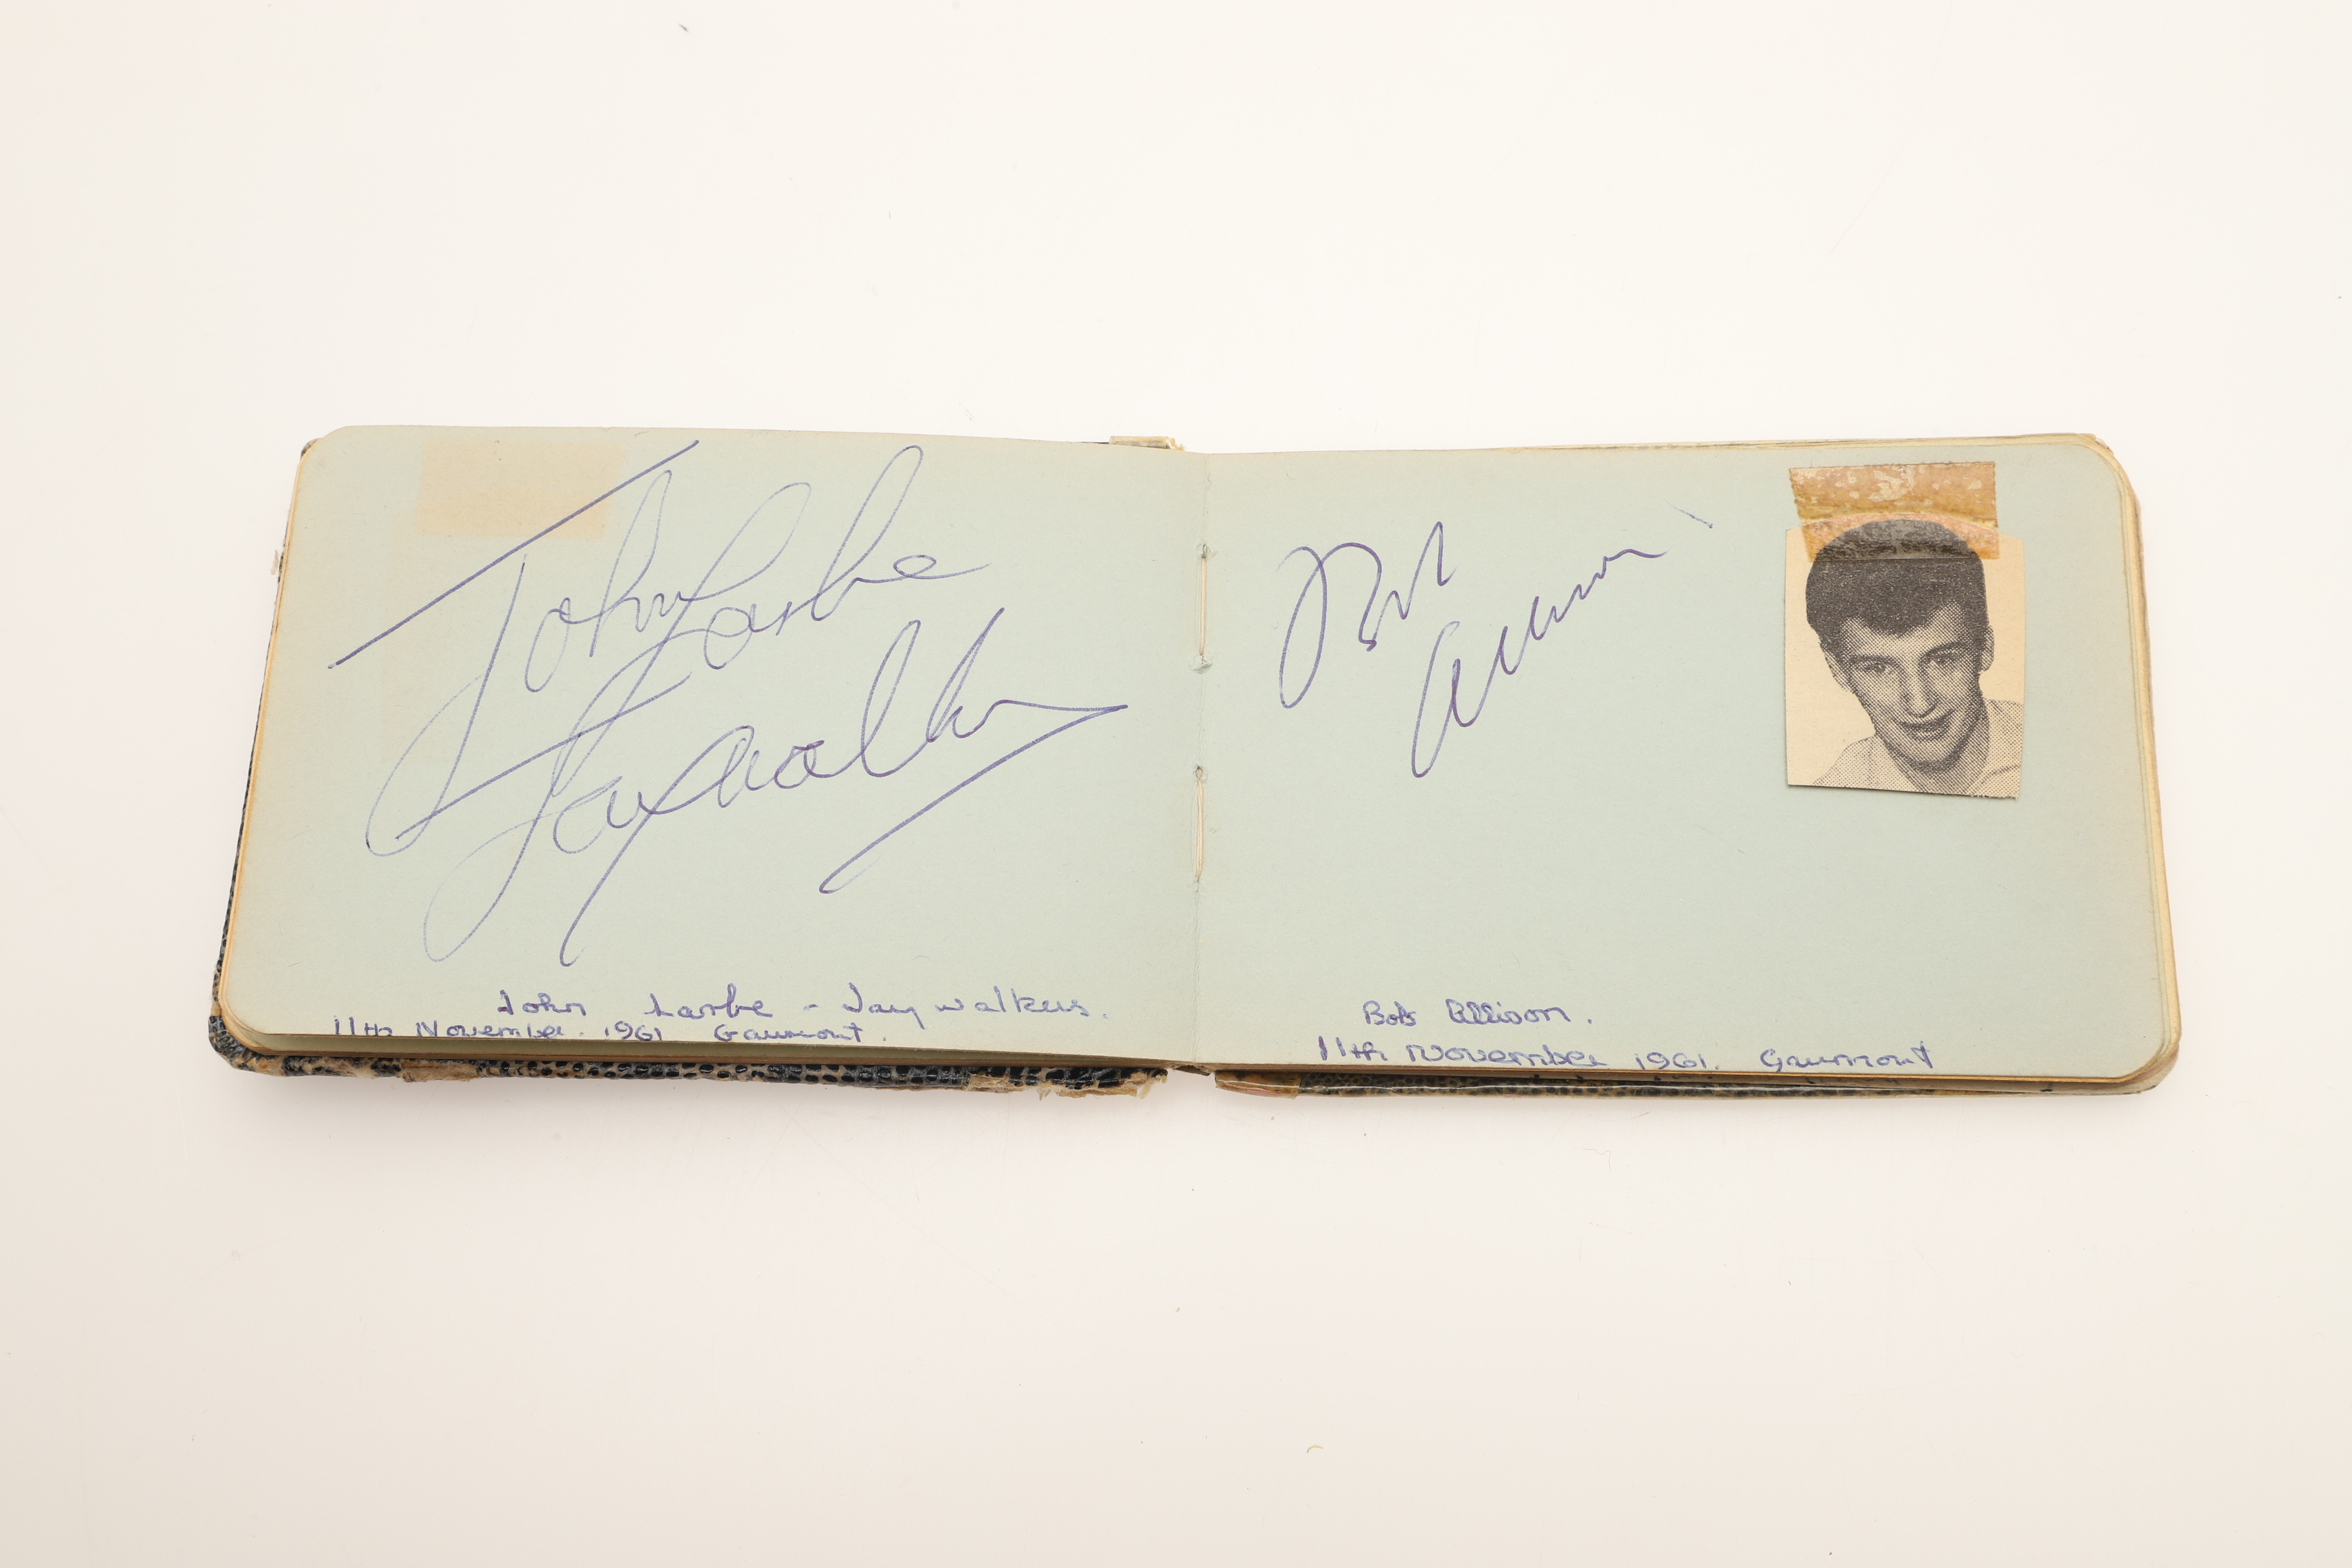 John Larbe
Jaywalkers
John Larbe - Jaywalkers.
11th November. 1961 Gaumont.
Bob
Allison
Bob Allison.
11th November 1961. Gaumont